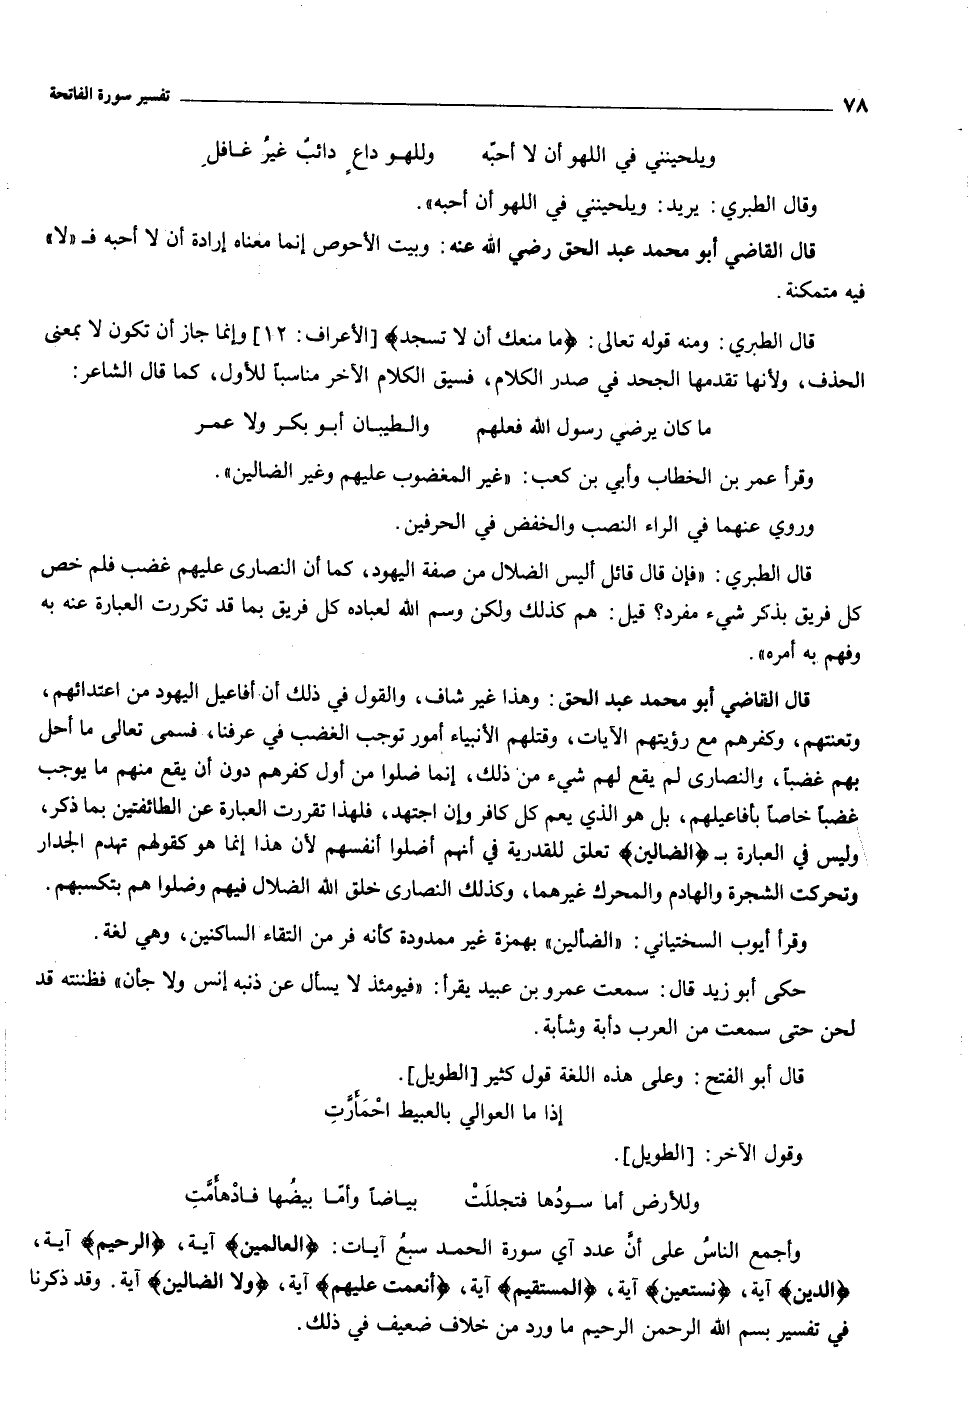 ٧٨ تفسير سورة الفاتحة
ويلحينني في اللهو أن لا أحبّه وللهـو داعٍ دائبٌ غيرُ غـافلِ
وقال الطبري: يريد: ويلحينني في اللهو أن أحبه».
قال القاضي أبو محمد عبد الحق رضي الله عنه: وبيت الأحوص إنما معناه إرادة أن لا أحبه فـ «لا»
فيه متمكنة.
قال الطبري: ومنه قوله تعالى: ﴿ما منعك أن لا تسجد﴾ [الأعراف: ١٢] وإنما جاز أن تكون لا بمعنى
الحذف، ولأنها تقدمها الجحد في صدر الكلام، فسيق الكلام الآخر مناسباً للأول، كما قال الشاعر:
ما كان يرضي رسول الله فعلهم والـطيبـان أبـو بكـر ولا عمـر
وقرأ عمر بن الخطاب وأبي بن كعب: «غير المغضوب عليهم وغير الضالين».
وروي عنهما في الراء النصب والخفض في الحرفين.
قال الطبري: «فإن قال قائل أليس الضلال من صفة اليهود، كما أن النصارى عليهم غضب فلم خص
كل فريق بذكر شيء مفرد؟ قيل: هم كذلك ولكن وسم الله لعباده كل فريق بما قد تكررت العبارة عنه به
وفهم به أمره».
قال القاضي أبو محمد عبد الحق: وهذا غير شاف، والقول في ذلك أن أفاعيل اليهود من اعتدائهم،
وتعنتهم، وكفرهم مع رؤيتهم الآيات، وقتلهم الأنبياء أمور توجب الغضب في عرفنا، فسمى تعالى ما أحل
بهم غضباً، والنصارى لم يقع لهم شيء من ذلك، إنما ضلوا من أول كفرهم دون أن يقع منهم ما يوجب
غضباً خاصاً بأفاعيلهم، بل هو الذي يعم كل كافر وإن اجتهد، فلهذا تقررت العبارة عن الطائفتين بما ذكر،
وليس في العبارة بـ ﴿الضالين﴾ تعلق للقدرية في أنهم أضلوا أنفسهم لأن هذا إنما هو كقولهم تهدم الجدار
وتحركت الشجرة والهادم والمحرك غيرهما، وكذلك النصارى خلق الله الضلال فيهم وضلوا هم بتكسبهم.
وقرأ أيوب السختياني: «الضألين» بهمزة غير ممدودة كأنه فر من التقاء الساكنين، وهي لغة.
حكى أبو زيد قال: سمعت عمرو بن عبيد يقرأ: «فيومئذ لا يسأل عن ذنبه إنس ولا جأن» فظننته قد
لحن حتى سمعت من العرب دأبة وشأبة.
قال أبو الفتح: وعلى هذه اللغة قول كثير [الطويل].
إذا ما العوالي بالعبيط احْمَأَرَّتِ
وقول الآخر: [الطويل].
وللأرض أما سـودُها فتجللَتْ بيـاضاً وأمّـا بيضُها فـادْهأَمَّتِ
وأجمع الناسُ على أنَّ عدد آي سورة الحمـد سبعُ آيـات: ﴿العالمين﴾ آيـة، ﴿الرحيم﴾ آيـة،
﴿الدين﴾ آية، ﴿نستعين﴾ آية، ﴿المستقيم﴾ آية، ﴿أنعمت عليهم﴾ آية، ﴿ولا الضالين﴾ آية. وقد ذكرنا
في تفسير بسم الله الرحمن الرحيم ما ورد من خلاف ضعيف في ذلك.